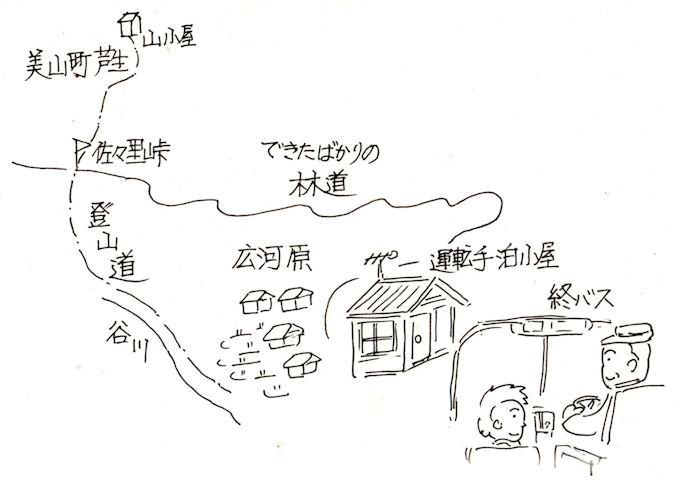 山小屋
美山町芦生
佐々里峠
できたばかりの
林道
登山道
広河原
運転手泊小屋
終バス
谷川